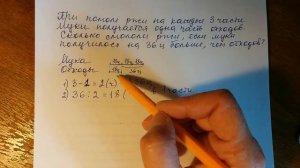 При помоле ржи на каждые 3 части
муки получается одна часть отходов.
Сколько смололи ржи, если муки
получилось на 36ц больше, чем отходов?
Мука
Отходы
1) 3-1=2(ч)
части
2) 36:2=18(